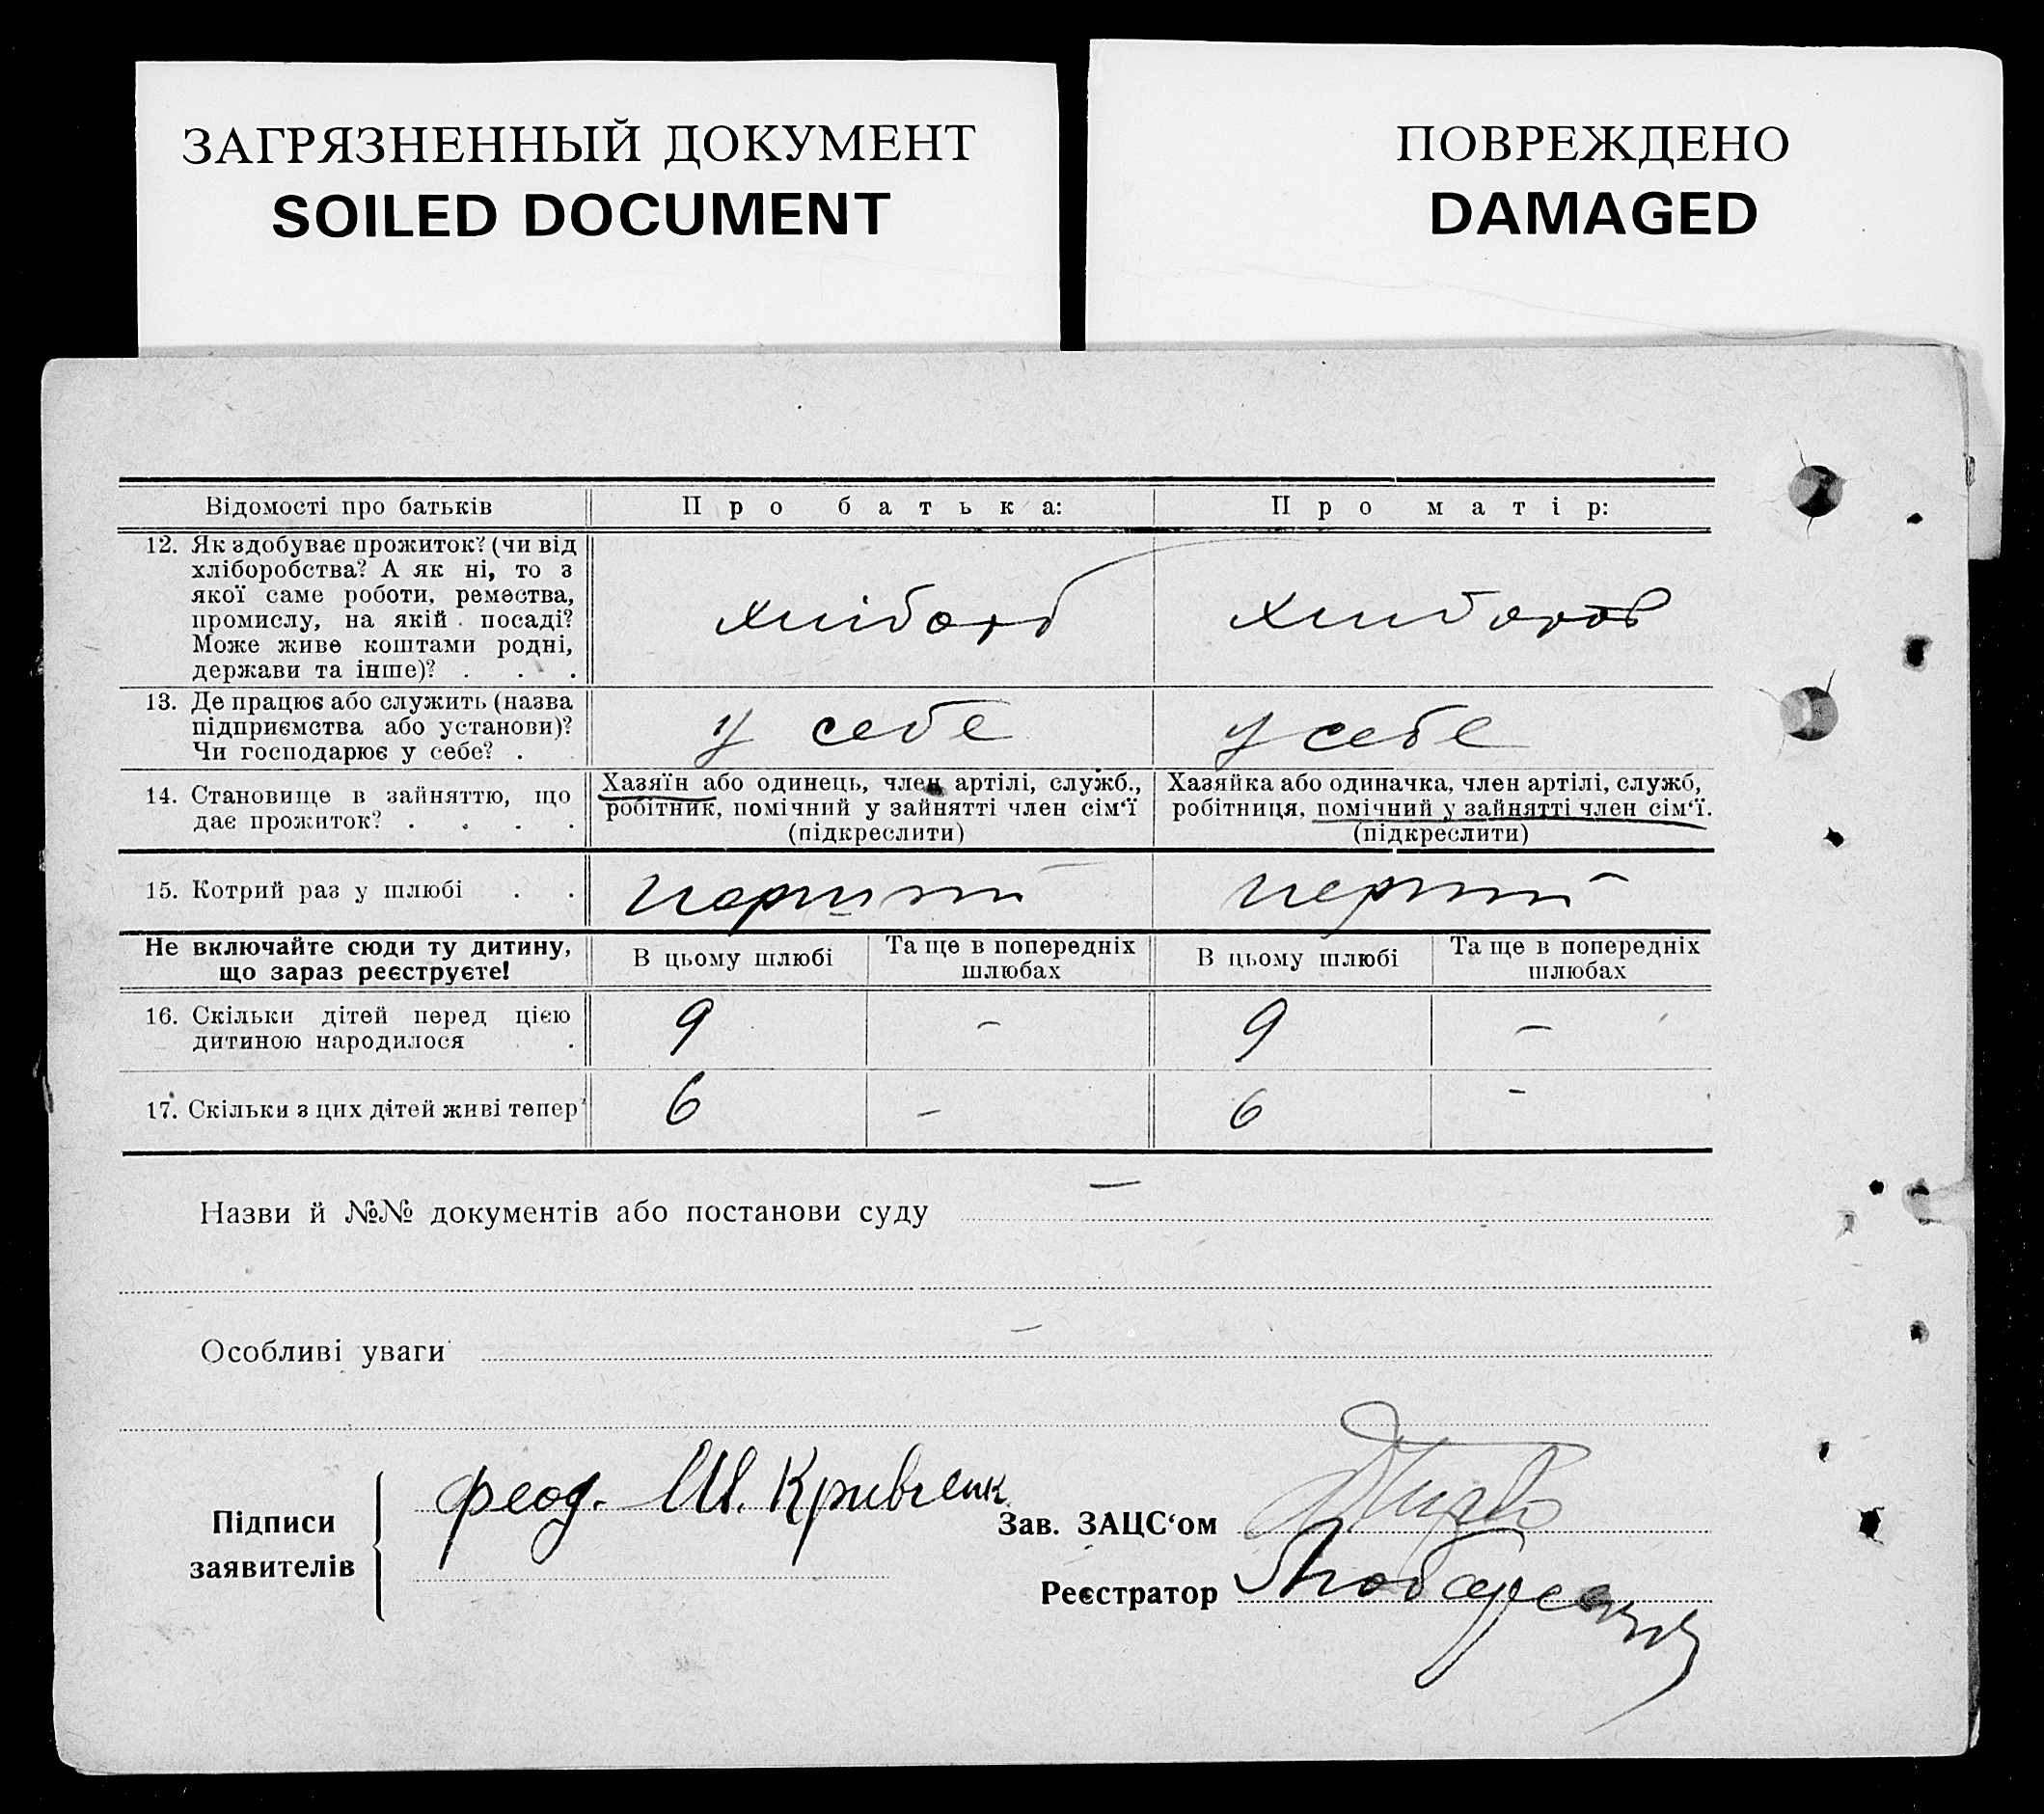 ЗАГРЯЗНЕННЫЙ ДОКУМЕНТ
SOILED DOCUMENT
ПОВРЕЖДЕНО
DAMAGED
Відомості про батьків Про батька: Про матір:
12. Як здобуває прожиток? (чи від
хліборобства? А як ні, то з
якої саме роботи, ремества,
промислу, на якій посаді?
Може живе коштами родні,
держави та інше)? . . .
хлібороб хлибороб
13. Де працює або служить (назва
підприємства або установи)?
Чи господарює у себе? .
у себе у себе
14. Становище в зайняттю, що
дає прожиток? . . . .
Хазяїн або одинець, член артілі, служб.,
робітник, помічний у зайнятті член сім‘ї
(підкреслити)
Хазяйка або одиначка, член артілі, служб,
робітниця, помічний у зайнятті член сім‘ї.
(підкреслити)
15. Котрий раз у шлюбі . . перший перший
Не включайте сюди ту дитину,
що зараз реєструєте!
В цьому шлюбі Та ще в попередніх
шлюбах
В цьому шлюбі Та ще в попередніх
шлюбах
16. Скільки дітей перед цією
дитиною народилося .
9 – 9 –
17. Скільки з цих дітей живі тепер 6 – 6 –
Назви й №№ документів або постанови суду –
Особливі уваги –
Підписи
заявителів
феод. Ш. Кривченк
Зав. ЗАЦС‘ом
Реєстратор